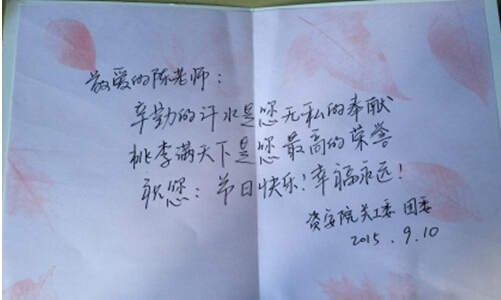 敬爱的陈老师：
辛勤的汗水是您无私的奉献
桃李满天下是您最高的荣誉
祝您：节日快乐！幸福永远！
资安院关工委 团委
2015.9.10